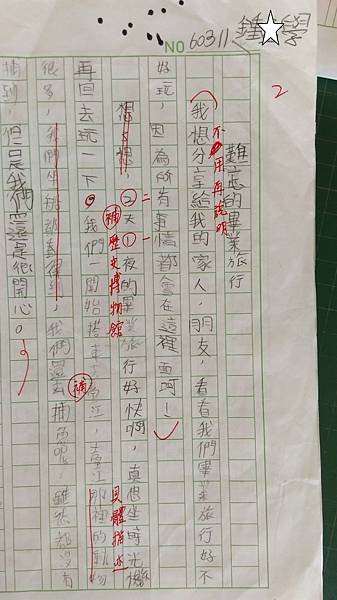 NO 60311 鍾 學
2
難忘的畢業旅行
不用再說明
我想分享給我的家人,朋友,看看我們畢業旅行好不
好玩,因為所有事情都會在這裡面呵!
想想,2天1夜的畢業旅行好快啊,真想坐時光機
二 一
補 歷史博物館
再回去玩一下。我們一開始搭車去台江,台江那裡的動物
具體描述
很多,我們還去捕魚呢,雖然都沒有
補
捕到,但是我們還是很開心。